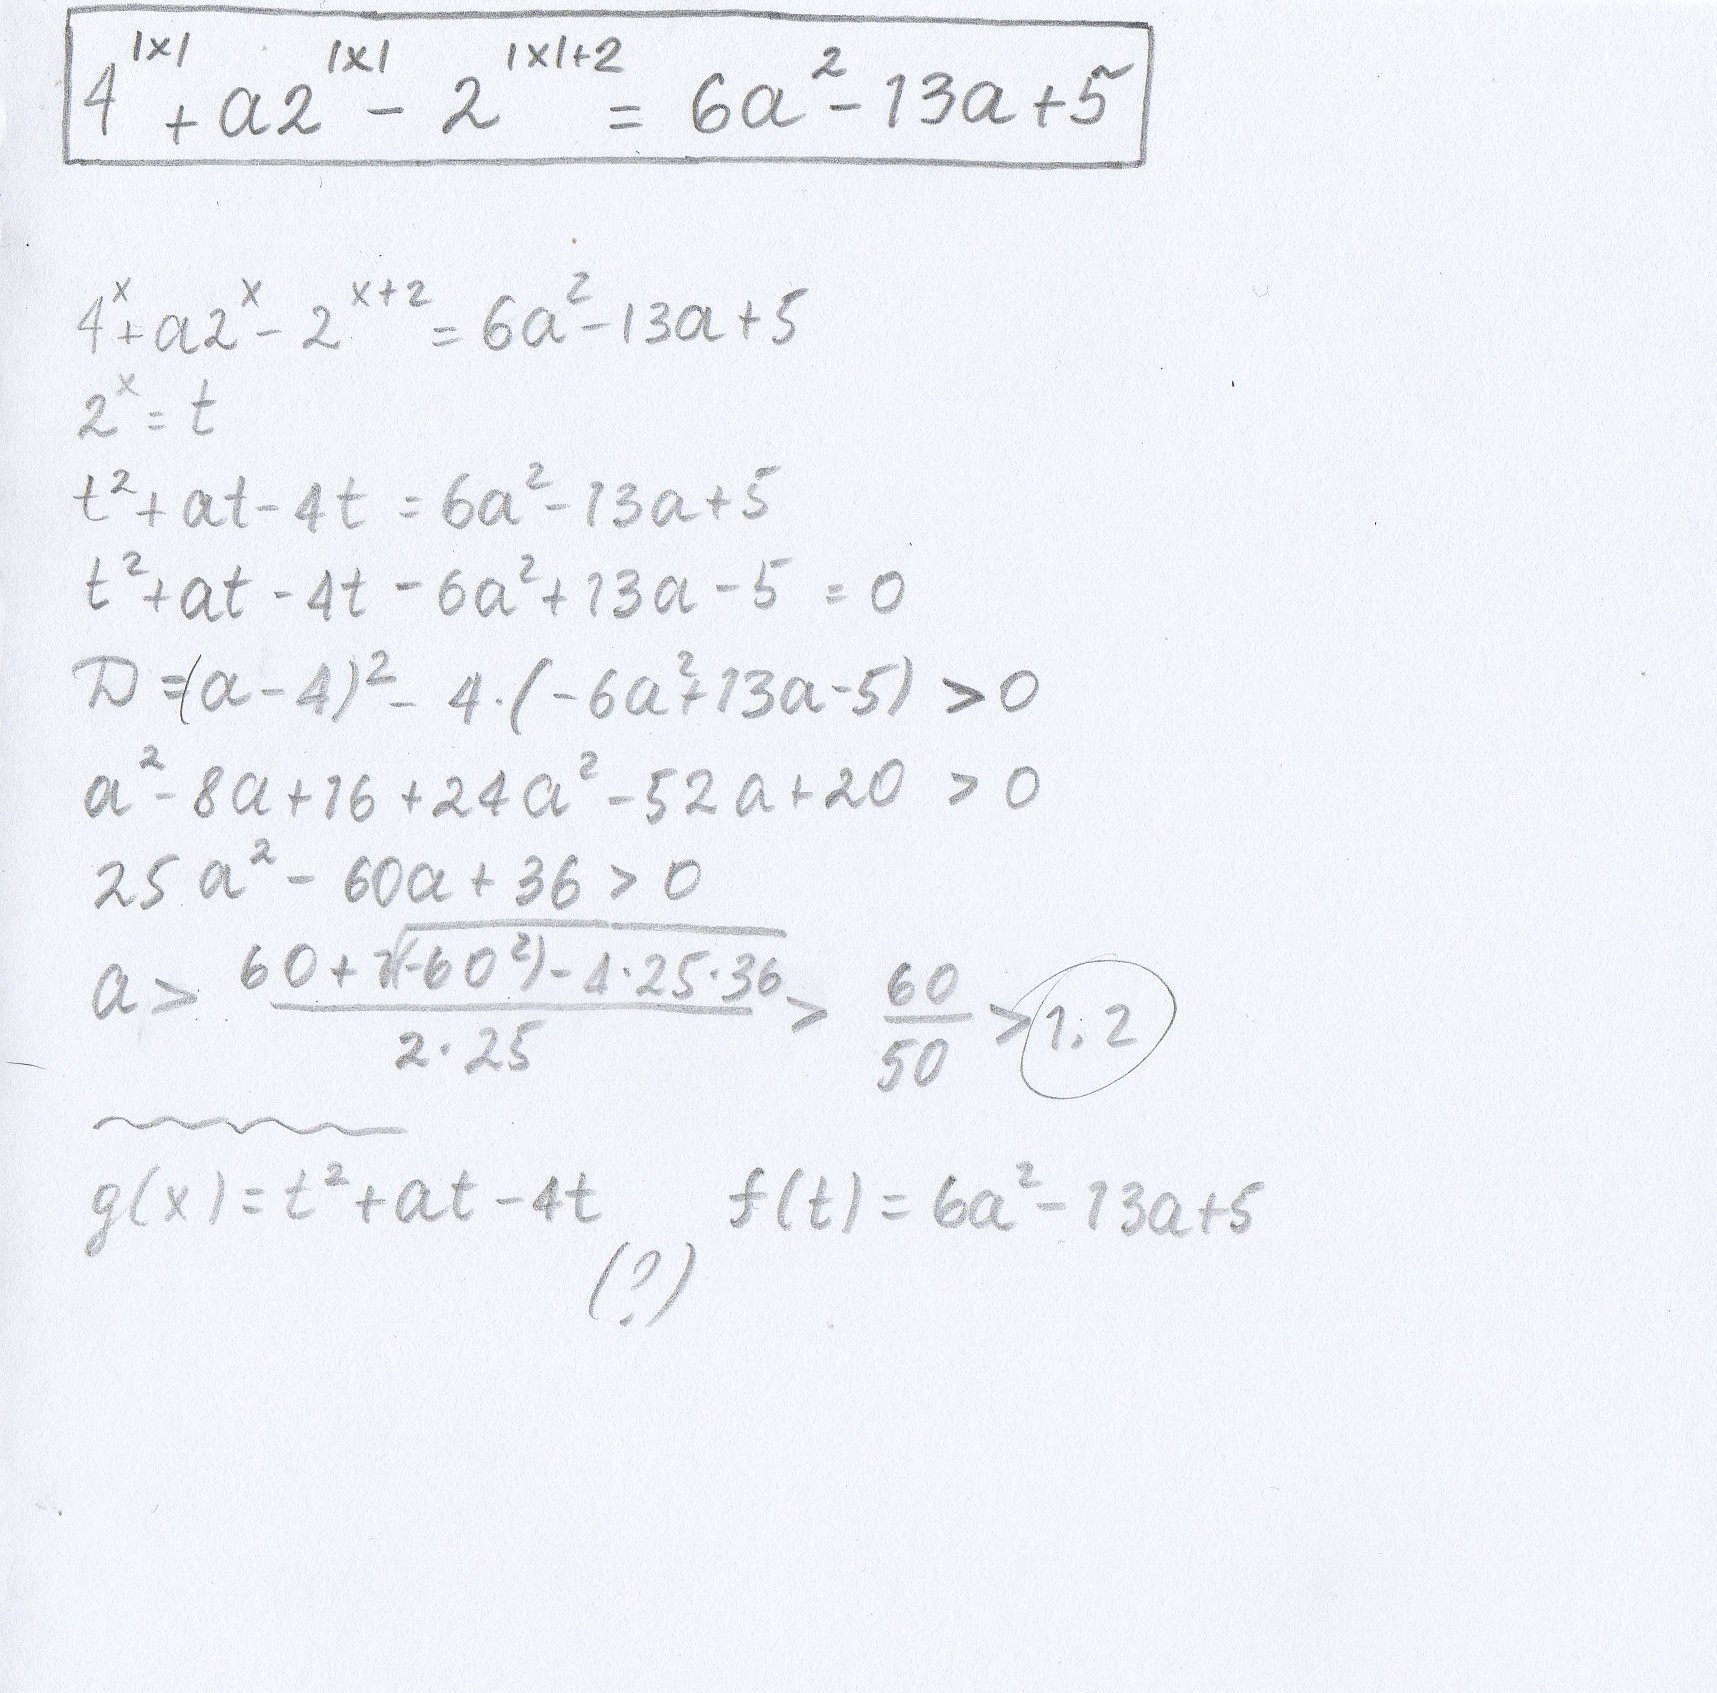 4^|x| + a2^|x| - 2^|x|+2 = 6a² - 13a + 5
4^x + a2^x - 2^x+2 = 6a² - 13a + 5
2^x = t
t² + at - 4t = 6a² - 13a + 5
t² + at - 4t - 6a² + 13a - 5 = 0
D = (a - 4)² - 4·(-6a² + 13a - 5) > 0
a² - 8a + 16 + 24a² - 52a + 20 > 0
25a² - 60a + 36 > 0
a > (60 + √((-60²) - 4·25·36)) / (2·25) > 60/50 > 1.2
g(x) = t² + at - 4t f(t) = 6a² - 13a + 5
(?)